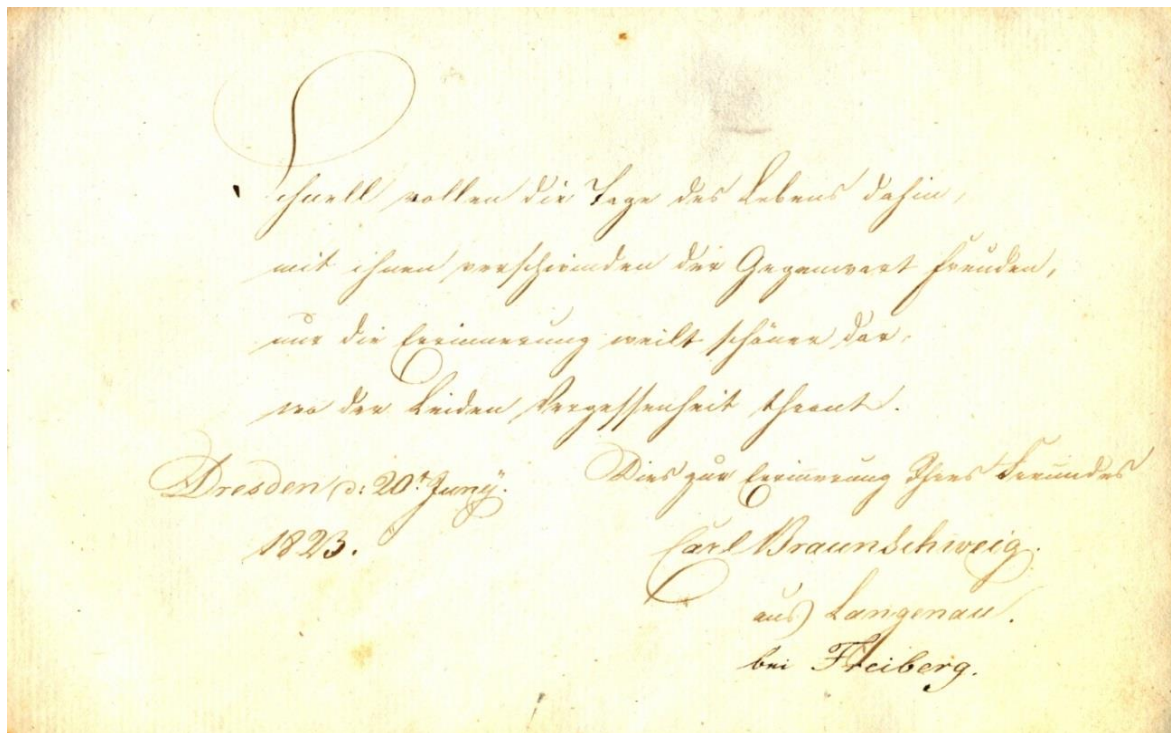 Schnell rollen die Tage des Lebens dahin,
mit ihnen verschwinden der Gegenwart Freuden,
nur die Errinnerung weilt schöner dar,
wo der Leiden Vergessenheit thront.
Dresden d: 20t Juny.
1823.
Dies zur Errinnerung Ihres Freundes
Carl Braunschweig.
aus Langenau.
bei Freiberg.